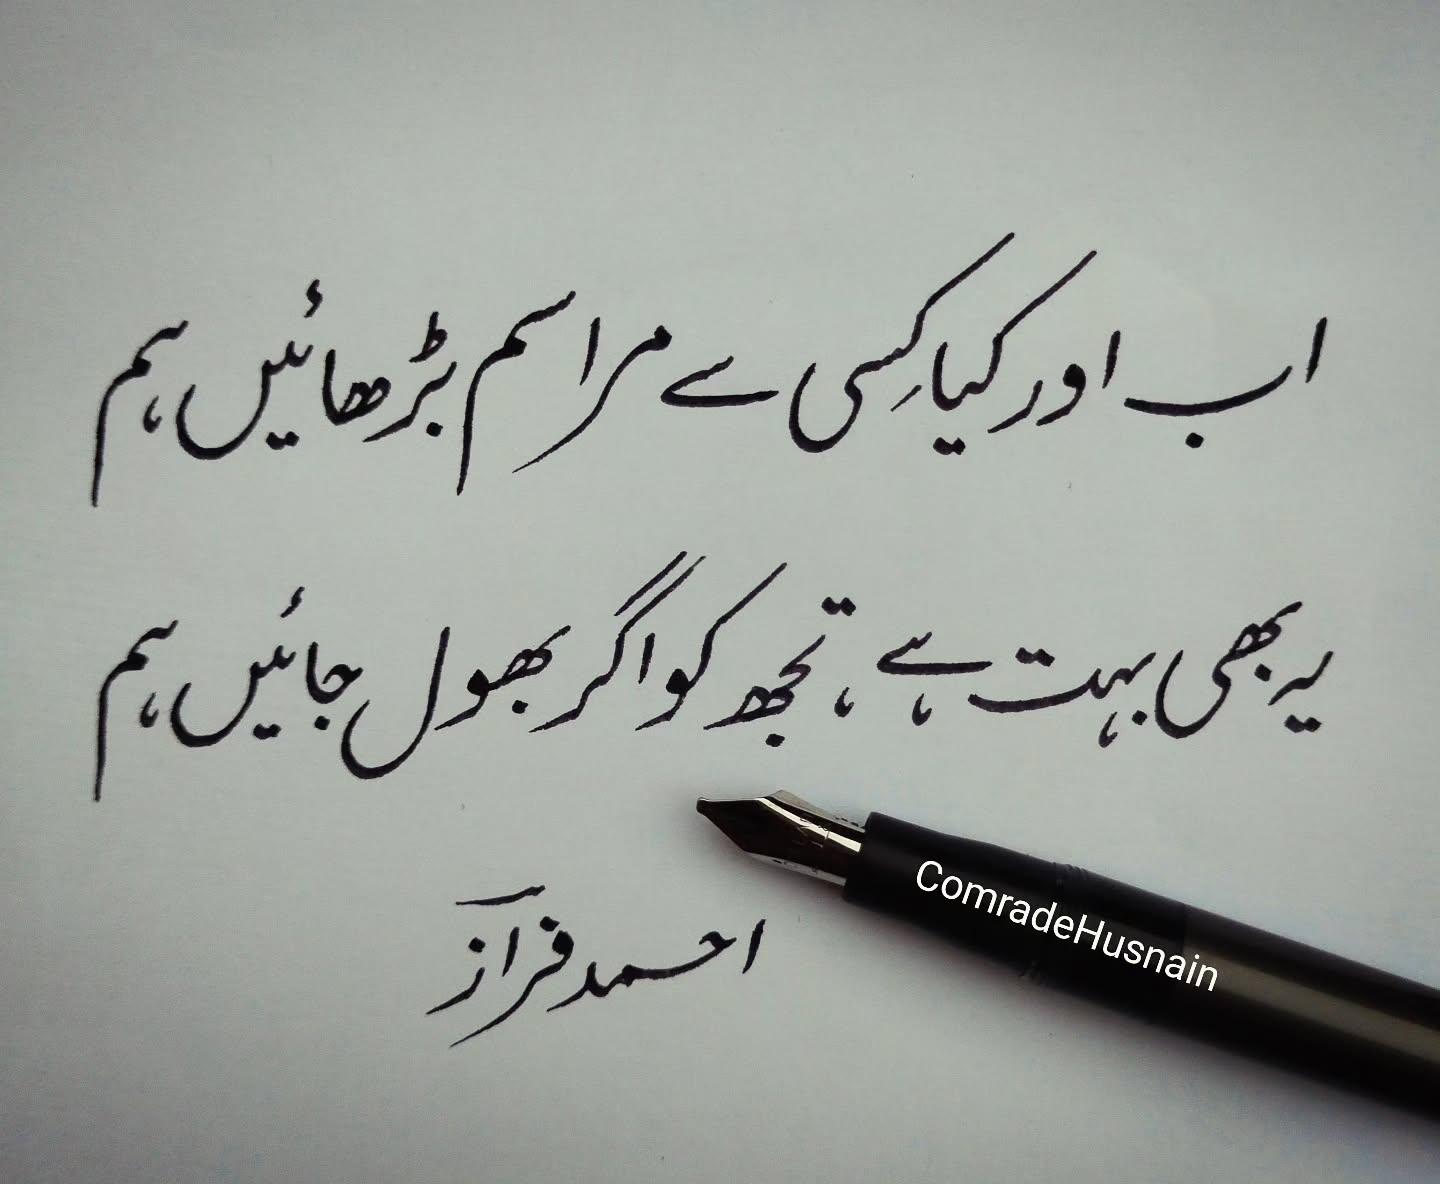 اب اور کیا کِسی سے مراسم بڑھائیں ہم
یہ بھی بہت ہے، تجھ کو اگر بھول جائیں ہم
احمد فراز
ComradeHusnain